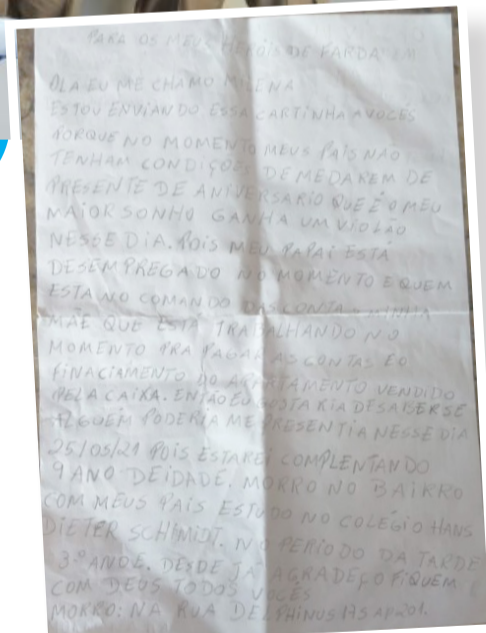 PARA OS MEUS HERÓIS DE FARDA EM
OLA EU ME CHAMO MILENA
ESTOU ENVIANDO ESSA CARTINHA A VOCÊS
PORQUE NO MOMENTO MEUS PAIS NÃO
TENHAM CONDIÇOES DE MEDAREM DE
PRESENTE DE ANIVERSARIO QUE É O MEU
MAIOR SONHO GANHA UM VIOLÃO
NESSE DIA. POIS MEU PAPAI ESTÁ
DESEMPREGADO NO MOMENTO E QUEM
ESTA NO COMANDO DAS CONTAS MINHA
MÃE QUE ESTÁ TRABALHANDO NO
MOMENTO PRA PAGAR AS CONTAS EO
FINACIAMENTO DO APARTAMENTO VENDIDO
PELA CAIXA. ENTÃO EU GOSTARIA DE SABER SE
ALGUÉM PODERIA ME PRESENTIA NESSE DIA
25/05/21 POIS ESTAREI COMPLENTANDO
9 ANO DE IDADE. MORRO NO BAIRRO
COM MEUS PAIS ESTUDO NO COLÉGIO HANS
DIETER SCHIMIDT. NO PERIODO DA TARDE
3º ANO E. DESDE JÁ AGRADEÇO FIQUEM
COM DEUS TODOS VOCÊS
MORRO: NA RUA DELPHINUS 175 AP 201.